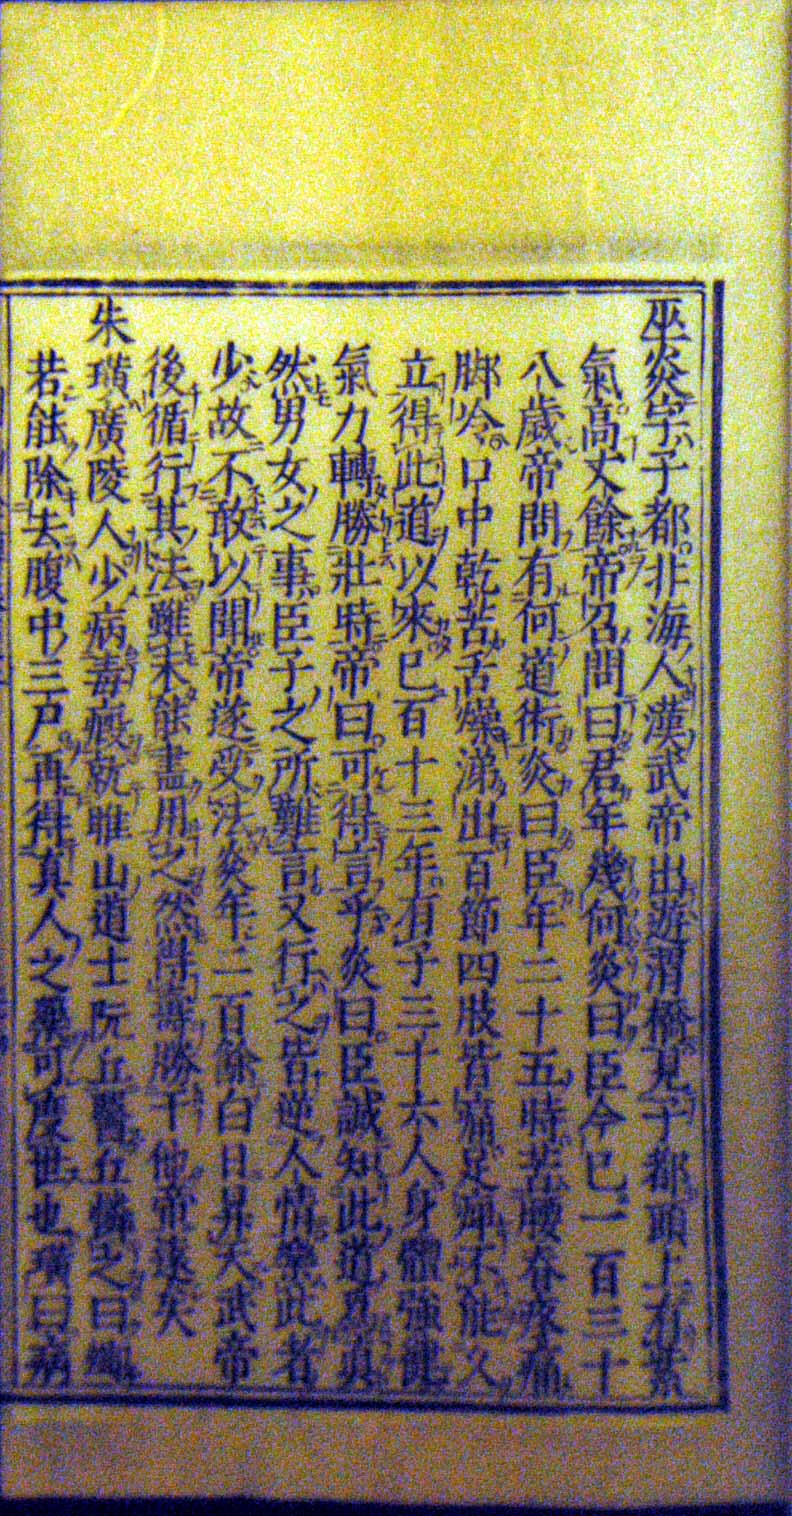 巫炎字子都非海人漢武帝出遊渭橋見子都頭上有紫
氣高丈餘帝召問曰君年幾何炎曰臣今已一百三十
八歲帝問有何道術炎曰臣年二十五時苦腰脊疼痛
脚冷口中乾苦舌燥涕出百節四肢皆痛足痺不能久
立得此道以來已百十三年有子三十六人身體強健
氣力轉勝壯時帝曰可得言乎炎曰臣誠知此道為真
然男女之事臣子之所難言又行之皆逆人情樂此者
少故不敢以聞帝遂受法炎年二百餘白日昇天武帝
後循行其法雖未能盡用之然得壽勝于他帝遠矣
朱璜廣陵人少病毒瘕就睢山道士阮丘醫丘憐之曰
若能除去腹中三尸再得真人之藥可度世也璜曰病